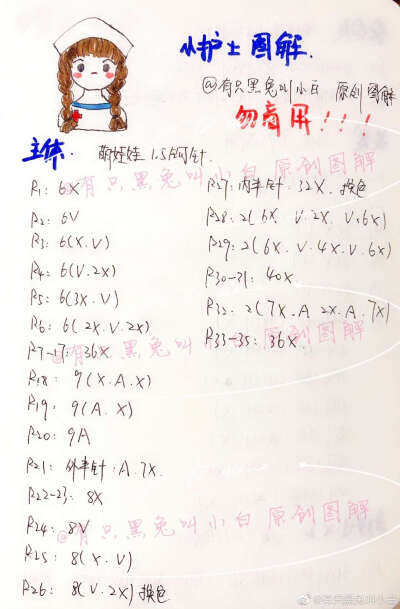 小护士图解.
@有只黑兔叫小白 原创图解
勿商用!!!
主体: 萌娃娃 1.5钩针.
@有只黑兔叫小白原创图解
R1: 6X
R2: 6V
R3: 6(X.V)
R4: 6(V.2X)
R5: 6(3X.V)
R6: 6(2X.V.2X)
R7-17: 36X
@有只黑兔叫小白原创图解
R18: 9(X.A.X)
R19: 9(A.X)
R20: 9A
R21: 外半针: A.7X
R22-23: 8X
R24: 8V
@有只黑兔叫小白原创图解
R25: 8(X.V)
R26: 8(V.2X) 换色
R27: 内半针: 32X. 换色
R28: 2(6X. V.2X. V.6X)
R29: 2(6X.V.4X.V.6X)
R30-31: 40X
R32: 2(7X.A 2X.A.7X)
R33-35: 36X
@有只黑兔叫小白